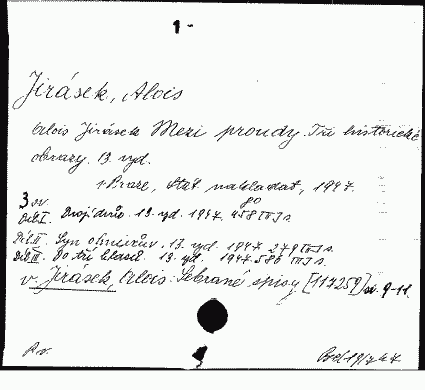 1-
Jirásek, Alois
Alois Jirásek Mezi proudy. Tři historické
obrazy. 13. vyd.
v Praze, Stát. nakladat, 1947.
3 sv. 8°
Díl I. Dvojí dvůr. 13. vyd. 1947. 458 III s.
Díl II. Syn ohnivcův. 13. vyd. 1947 279 III s.
Díl III. Do tří hlasů. 13. vyd. 1947. 580 III s.
v. Jirásek, Alois: Sebrané spisy [117259] sv. 9-11.